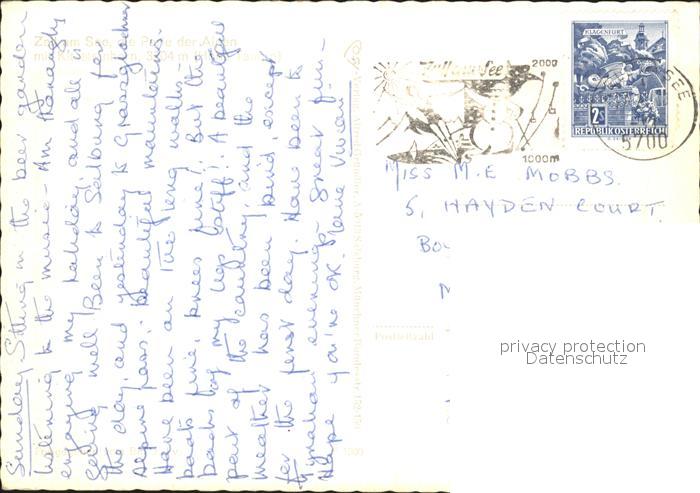 Sunday Sitting in the beer garden
listening to the music - Am
enjoying my holiday and all is
going well. Been to Salzburg for
the day, and yesterday to Grossglockner
Alpine pass. Beautiful mountains.
Have been on two long walks -
boots fine, knees fine, But the
backs of my legs (stiff)! A beautiful
part of the country, and the
weather has been kind, except
for the first day. Have been to
Tyrolean evenings. Great fun -
Hope you're OK. Love
Zell am See, die Perle der Alpen
KLAGENFURT
2S
REPUBLIK ÖSTERREICH
Zell am See
2000
1000m
SEE
5700
MISS M.E MOBBS.
5, HAYDEN COURT.
Postleitzahl
privacy protection
Datenschutz